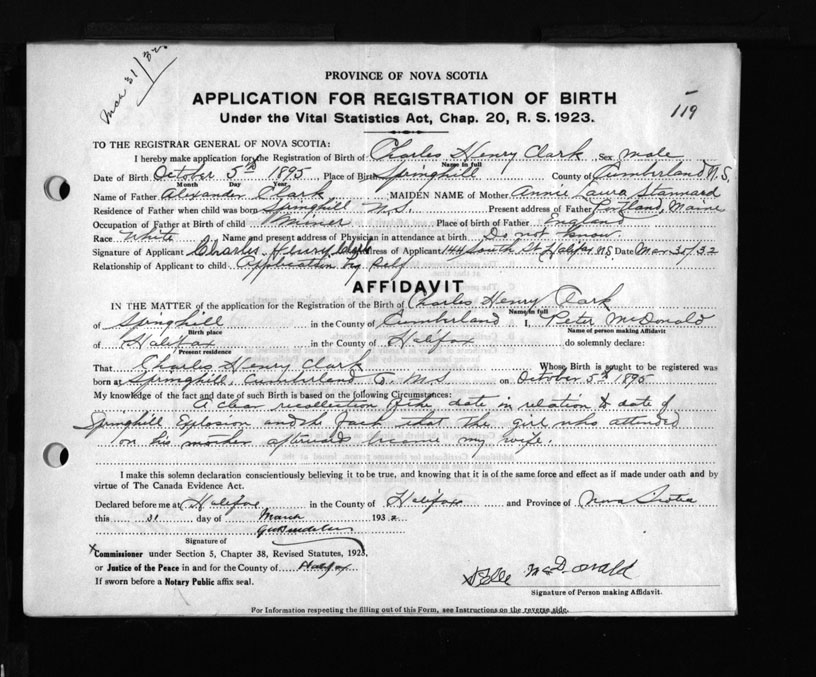 Mar 31/32
PROVINCE OF NOVA SCOTIA
APPLICATION FOR REGISTRATION OF BIRTH
119
Under the Vital Statistics Act, Chap. 20, R. S. 1923.
TO THE REGISTRAR GENERAL OF NOVA SCOTIA:
I hereby make application for the Registration of Birth of Charles Henry Clark Sex male
Name in full
Date of Birth October 5th 1895 Place of Birth Springhill County of Cumberland N.S.
Month Day Year
Name of Father Alexander Clark MAIDEN NAME of Mother Annie Laura Stannard
Residence of Father when child was born Springhill N.S. Present address of Father Portland, Maine
Occupation of Father at Birth of child Miner Place of birth of Father England
Race White Name and present address of Physician in attendance at birth Do not know
Signature of Applicant Charles Henry Clark Address of Applicant 144 South St Halifax N.S. Date Mar 30/32
Relationship of Applicant to child Application by Self
AFFIDAVIT
IN THE MATTER of the application for the Registration of the Birth of Charles Henry Clark
Name in full
of Spinghill in the County of Cumberland I, Peter McDonald
Birth place Name of person making Affidavit
of Halifax in the County of Halifax do solemnly declare:
Present residence
That Charles Henry Clark Whose Birth is sought to be registered was
born at Springhill, Cumberland Co. N.S. on October 5th 1895
My knowledge of the fact and date of such Birth is based on the following Circumstances:
A clear recollection of the date in relation to date of
Springhill Explosion and the fact that the girl who attended
on his mother afterward became my wife.
I make this solemn declaration conscientiously believing it to be true, and knowing that it is of the same force and effect as if made under oath and by
virtue of The Canada Evidence Act.
Declared before me at Halifax in the County of Halifax and Province of Nova Scotia
this 31 day of March 1932
Signature of
Commissioner under Section 5, Chapter 38, Revised Statutes, 1923,
or Justice of the Peace in and for the County of Halifax
If sworn before a Notary Public affix seal.
McDonald
Signature of Person making Affidavit.
For Information respecting the filling out of this Form, see Instructions on the reverse side.